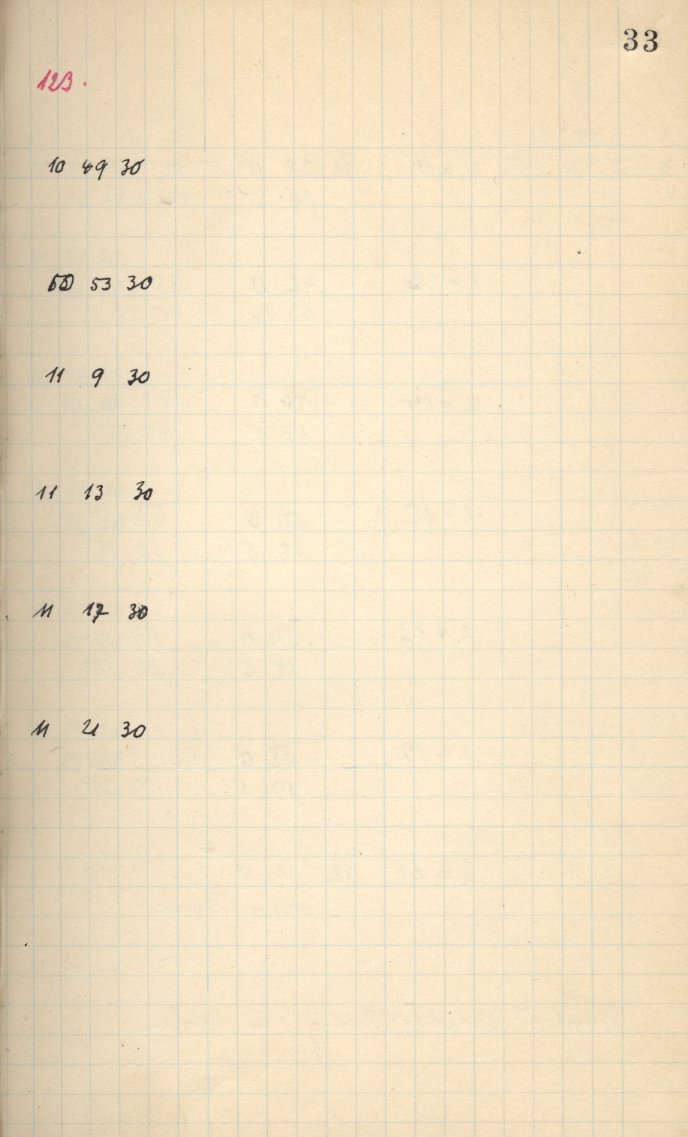 33
123.
10 49 30
53 30
11 9 30
11 13 30
11 17 30
11 21 30